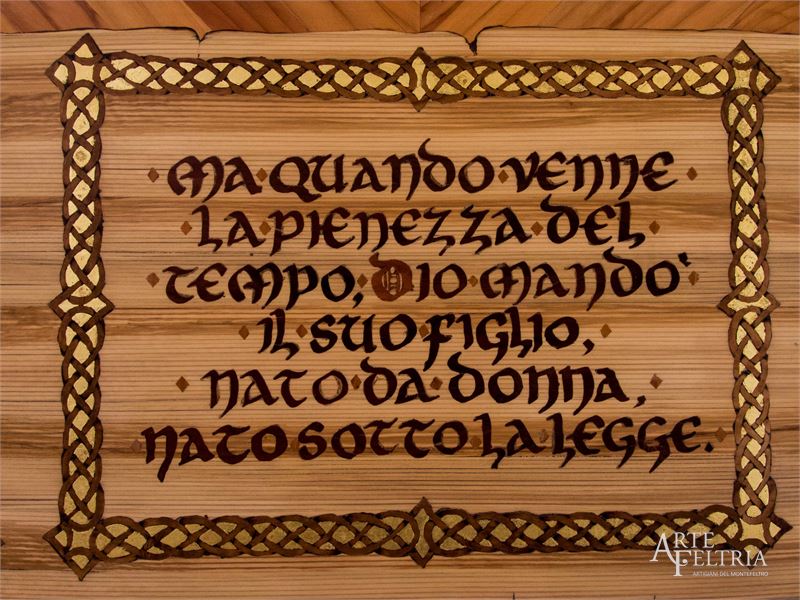 ·MA·QUANDO·VENNE·
·LA·PIENEZZA·DEL·
·TEMPO,·DIO·MANDO'·
·IL·SUO·FIGLIO,·
·NATO·DA·DONNA,·
·NATO·SOTTO·LA·LEGGE.·
ARTE
FELTRIA
ARTIGIANI DEL MONTEFELTRO